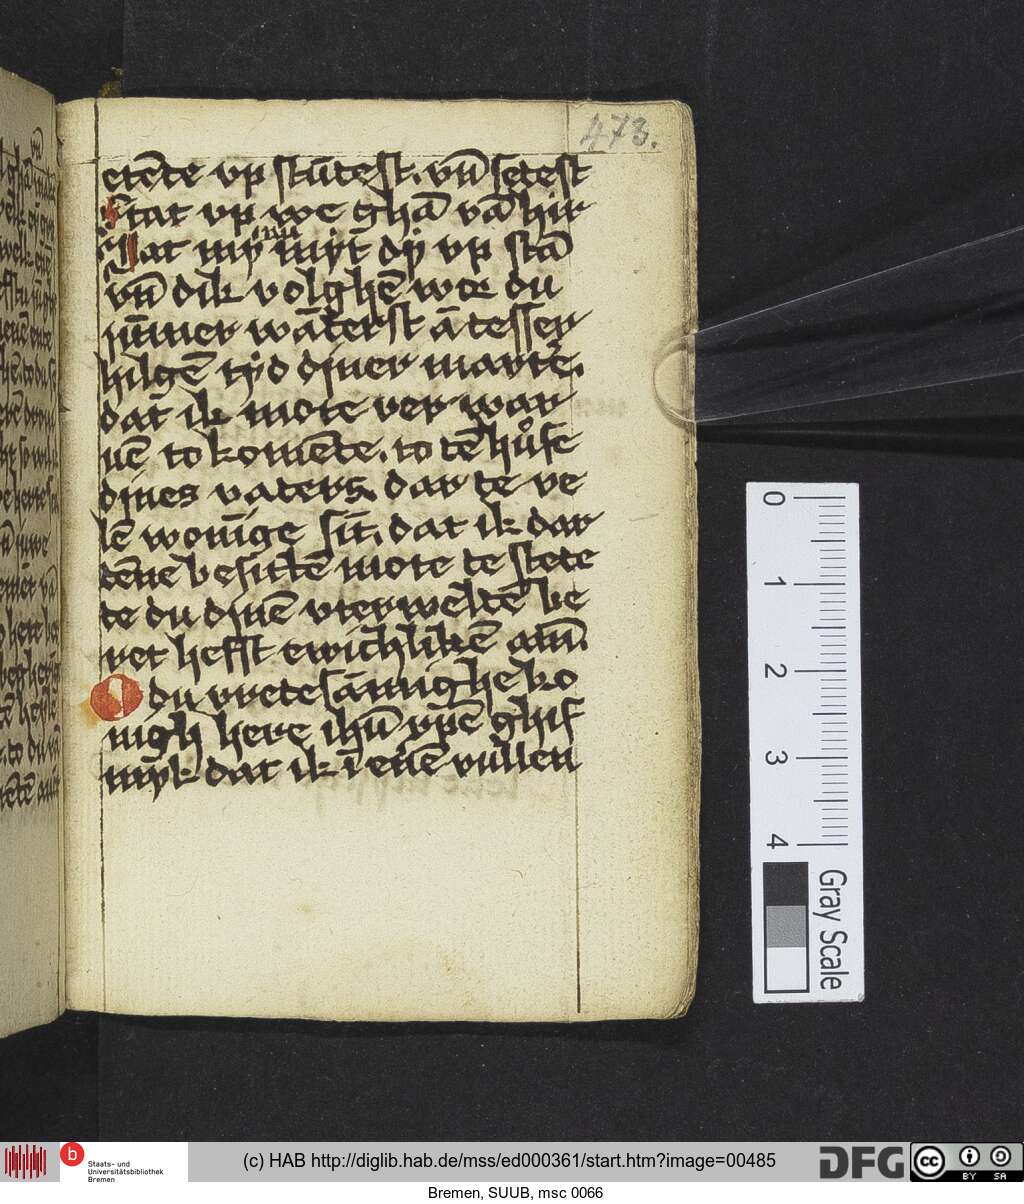 473.
etēte vp stūtest. vn̄ setest
Stat vp we ghā vā hir
Lat my inn myt dy vp stā
vn̄ dik volghē wor du
ūmer wāterst ā tesser
hilgē tyd diner marter.
dat ik mote ver war
uē to komēte. to tē huse
dines vaters dar te ve
lē wonīge sīt. dat ik dar
tēne besittē mote te stete
te du dinē vterweltē be
ret hefft ewichlikē am̄
O du vretesāmighe ko
nigh here ihū xpē ghif
myk dat ik ī enē vullen
0
1
2
3
4
Gray Scale
Staats- und
Universitätsbibliothek
Bremen
(c) HAB http://diglib.hab.de/mss/ed000361/start.htm?image=00485
DFG
cc
BY SA
Bremen, SUUB, msc 0066